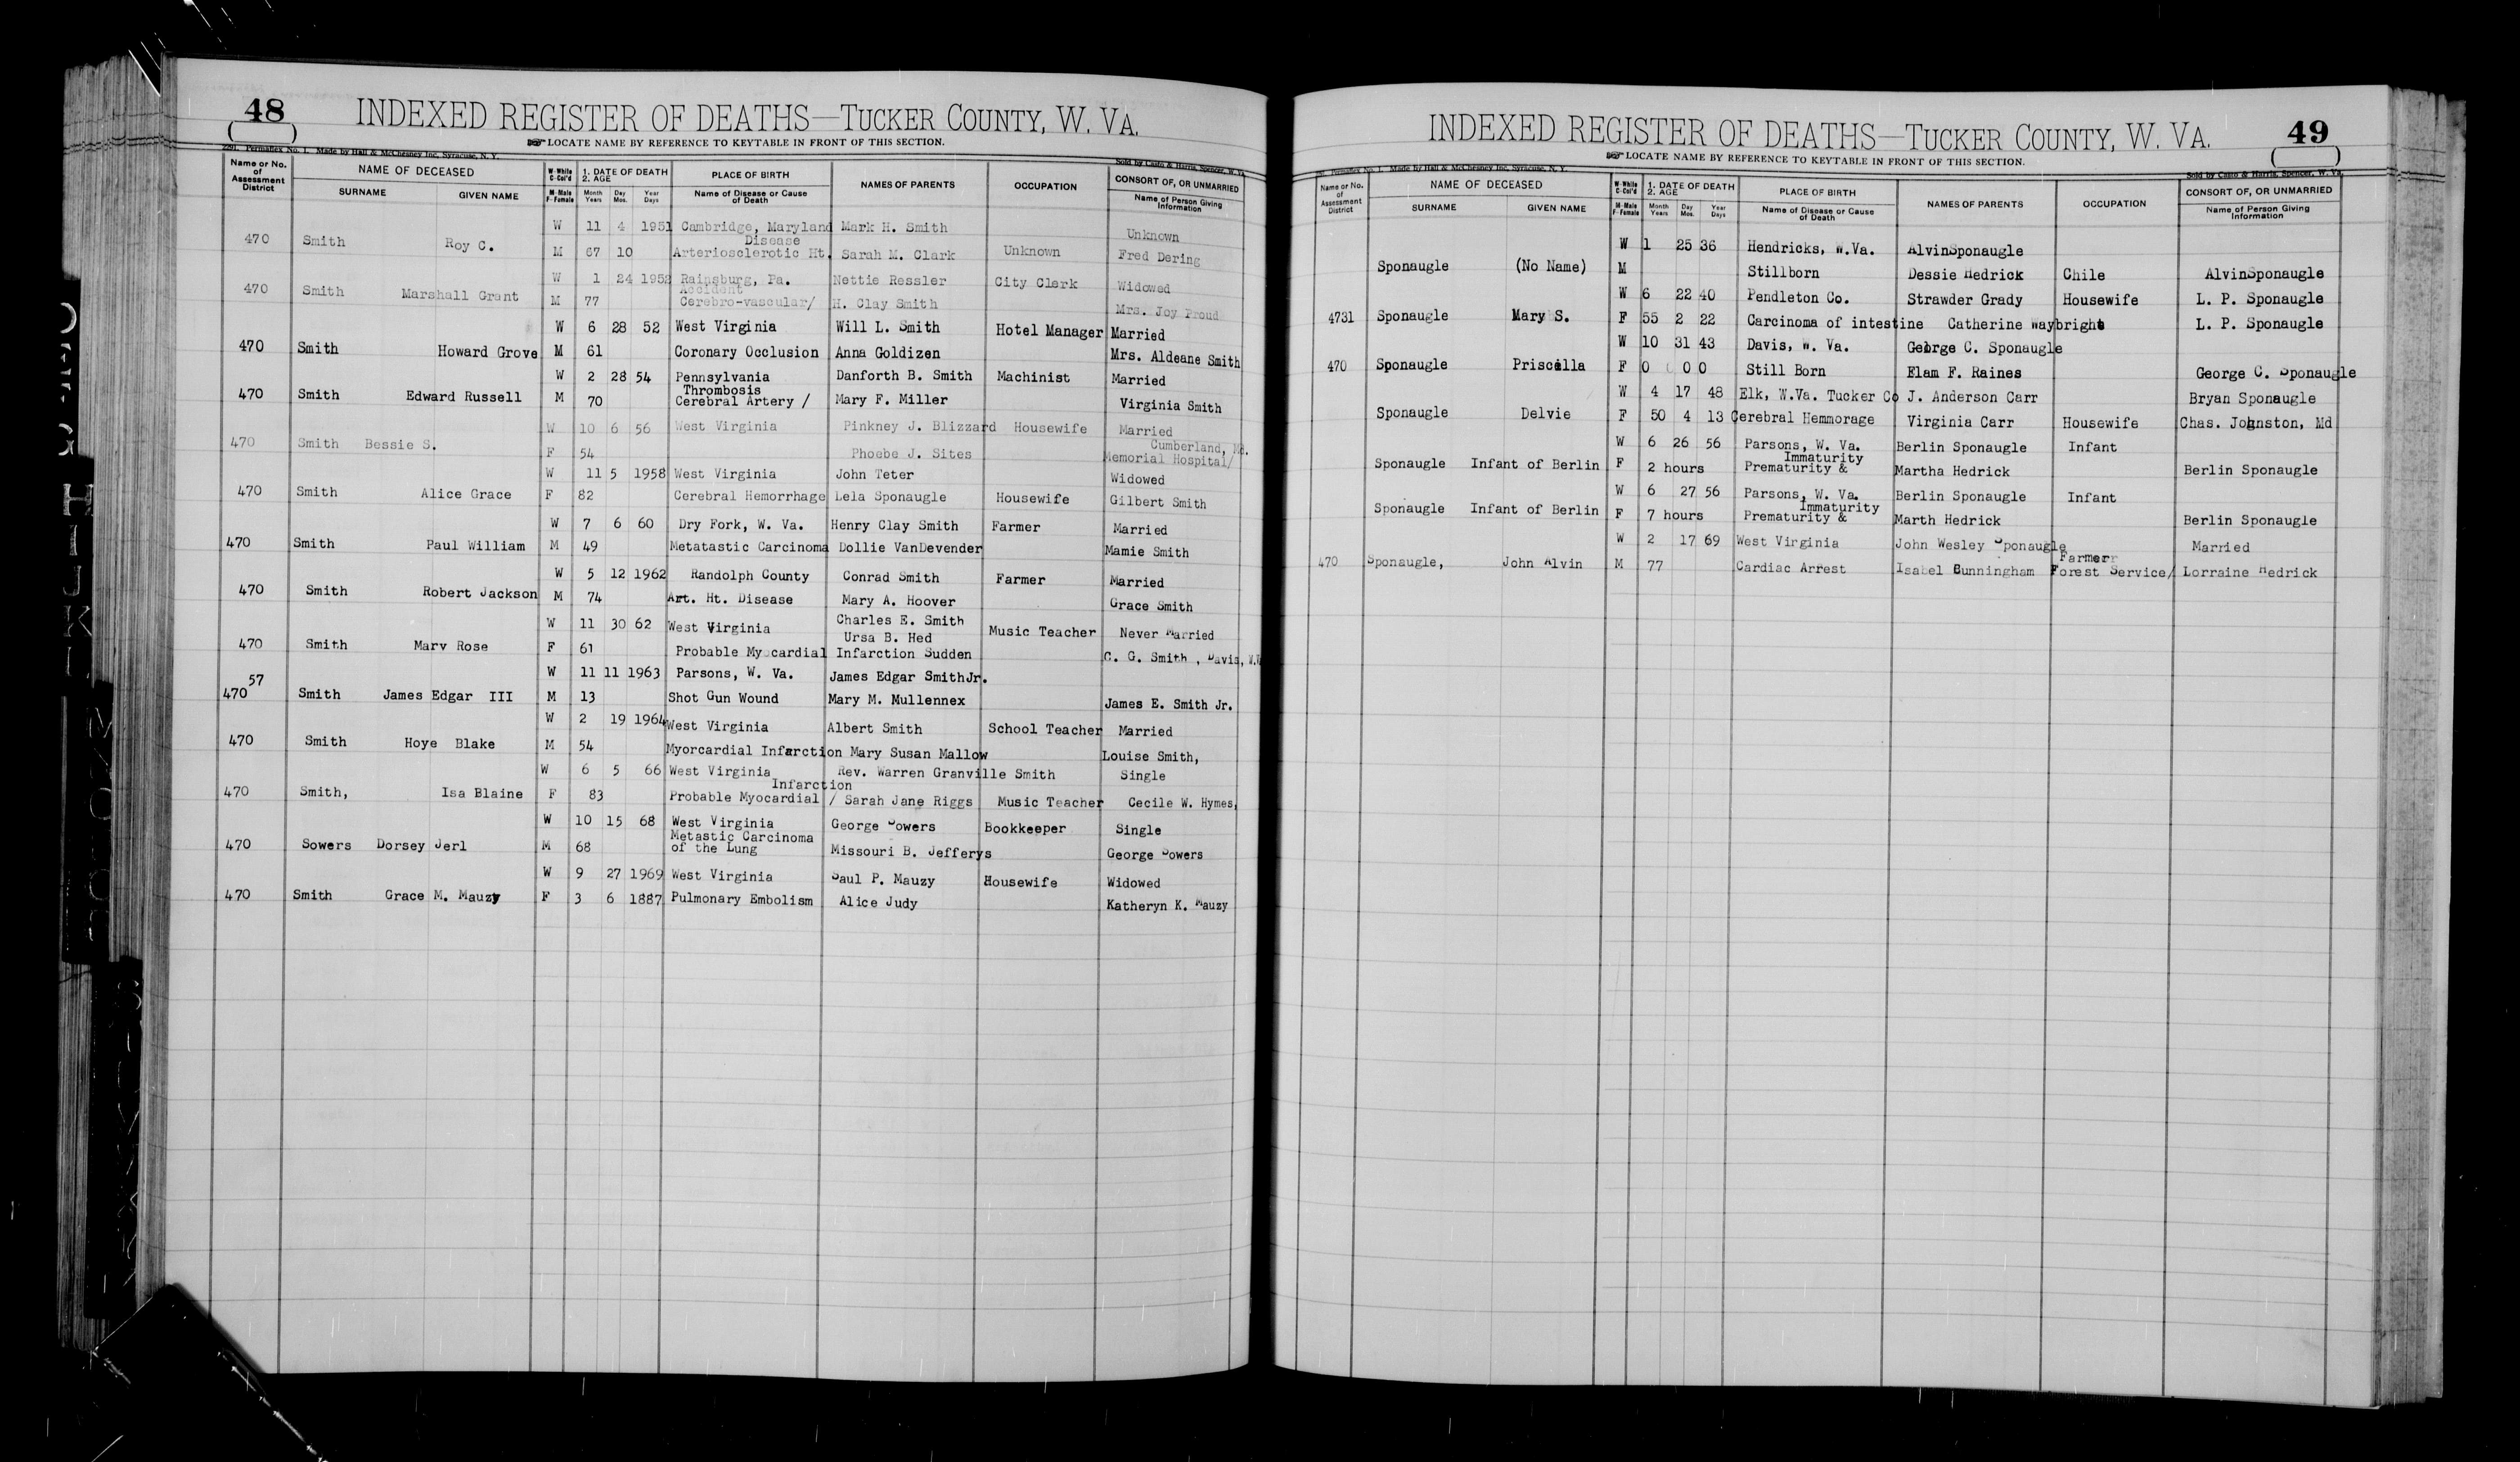 48
INDEXED REGISTER OF DEATHS—TUCKER COUNTY, W. VA.
LOCATE NAME BY REFERENCE TO KEYTABLE IN FRONT OF THIS SECTION.
Permatex No. 1. Made by Hall & McChesney Inc. Syracuse, N. Y.
Sold by Casto & Harris, Spencer, W. Va.
Name or No. of Assessment District
NAME OF DECEASED
SURNAME GIVEN NAME
W-White C-Col'd
M-Male F-Female
1. DATE OF DEATH
2. AGE
Month Day Year
Years Mos. Days
PLACE OF BIRTH
Name of Disease or Cause of Death
NAMES OF PARENTS
OCCUPATION
CONSORT OF, OR UNMARRIED
Name of Person Giving Information
W 11 4 1951 Cambridge, Maryland Mark H. Smith Unknown
Disease
470 Smith Roy C. M 67 10 Arteriosclerotic Ht. Sarah M. Clark Unknown Fred Dering
W 1 24 1952 Rainsburg, Pa. Nettie Ressler City Clerk Widowed
Accident
470 Smith Marshall Grant M 77 Cerebro-vascular/ H. Clay Smith Mrs. Joy Proud
W 6 28 52 West Virginia Will L. Smith Hotel Manager Married
470 Smith Howard Grove M 61 Coronary Occlusion Anna Goldizen Mrs. Aldeane Smith
W 2 28 54 Pennsylvania Danforth B. Smith Machinist Married
Thrombosis
470 Smith Edward Russell M 70 Cerebral Artery / Mary F. Miller Virginia Smith
W 10 6 56 West Virginia Pinkney J. Blizzard Housewife Married
Cumberland, Md.
470 Smith Bessie S. F 54 Phoebe J. Sites Memorial Hospital/
W 11 5 1958 West Virginia John Teter Widowed
470 Smith Alice Grace F 82 Cerebral Hemorrhage Lela Sponaugle Housewife Gilbert Smith
W 7 6 60 Dry Fork, W. Va. Henry Clay Smith Farmer Married
470 Smith Paul William M 49 Metatastic Carcinoma Dollie VanDevender Mamie Smith
W 5 12 1962 Randolph County Conrad Smith Farmer Married
470 Smith Robert Jackson M 74 Art. Ht. Disease Mary A. Hoover Grace Smith
W 11 30 62 West Virginia Charles E. Smith Music Teacher Never Married
Ursa B. Hed
470 Smith Mary Rose F 61 Probable Myocardial Infarction Sudden C. G. Smith , Davis, W.V
W 11 11 1963 Parsons, W. Va. James Edgar SmithJr.
57
470 Smith James Edgar III M 13 Shot Gun Wound Mary M. Mullennex James E. Smith Jr.
W 2 19 1964 West Virginia Albert Smith School Teacher Married
470 Smith Hoye Blake M 54 Myorcardial Infarction Mary Susan Mallow Louise Smith,
W 6 5 66 West Virginia Rev. Warren Granville Smith Single
Infarction
470 Smith, Isa Blaine F 83 Probable Myocardial / Sarah Jane Riggs Music Teacher Cecile W. Hymes,
W 10 15 68 West Virginia George Sowers Bookkeeper Single
Metastic Carcinoma
470 Sowers Dorsey Jerl M 68 of the Lung Missouri B. Jefferys George Sowers
W 9 27 1969 West Virginia Saul P. Mauzy Housewife Widowed
470 Smith Grace M. Mauzy F 3 6 1887 Pulmonary Embolism Alice Judy Katheryn K. Mauzy
49
INDEXED REGISTER OF DEATHS—TUCKER COUNTY, W. VA.
LOCATE NAME BY REFERENCE TO KEYTABLE IN FRONT OF THIS SECTION.
Made by Hall & McChesney Inc. Syracuse, N. Y.
Sold by Casto & Harris, Spencer, W. Va.
Name or No. of Assessment District
NAME OF DECEASED
SURNAME GIVEN NAME
W-White C-Col'd
M-Male F-Female
1. DATE OF DEATH
2. AGE
Month Day Year
Years Mos. Days
PLACE OF BIRTH
Name of Disease or Cause of Death
NAMES OF PARENTS
OCCUPATION
CONSORT OF, OR UNMARRIED
Name of Person Giving Information
W 1 25 36 Hendricks, W.Va. AlvinSponaugle
Sponaugle (No Name) M Stillborn Dessie Hedrick Chile AlvinSponaugle
W 6 22 40 Pendleton Co. Strawder Grady Housewife L. P. Sponaugle
4731 Sponaugle Mary S. F 55 2 22 Carcinoma of intestine Catherine Waybright L. P. Sponaugle
W 10 31 43 Davis, W. Va. George C. Sponaugle
470 Sponaugle Priscilla F 0 0 0 0 Still Born Elam F. Raines George C. Sponaugle
W 4 17 48 Elk, W.Va. Tucker Co J. Anderson Carr Bryan Sponaugle
Sponaugle Delvie F 50 4 13 Cerebral Hemmorage Virginia Carr Housewife Chas. Johnston, Md
W 6 26 56 Parsons, W. Va. Berlin Sponaugle Infant
Immaturity
Sponaugle Infant of Berlin F 2 hours Prematurity & Martha Hedrick Berlin Sponaugle
W 6 27 56 Parsons, W. Va. Berlin Sponaugle Infant
Immaturity
Sponaugle Infant of Berlin F 7 hours Prematurity & Marth Hedrick Berlin Sponaugle
W 2 17 69 West Virginia John Wesley Sponaugle Married
Farmer
470 Sponaugle, John Alvin M 77 Cardiac Arrest Isabel Bunningham Forest Service/ Lorraine Hedrick